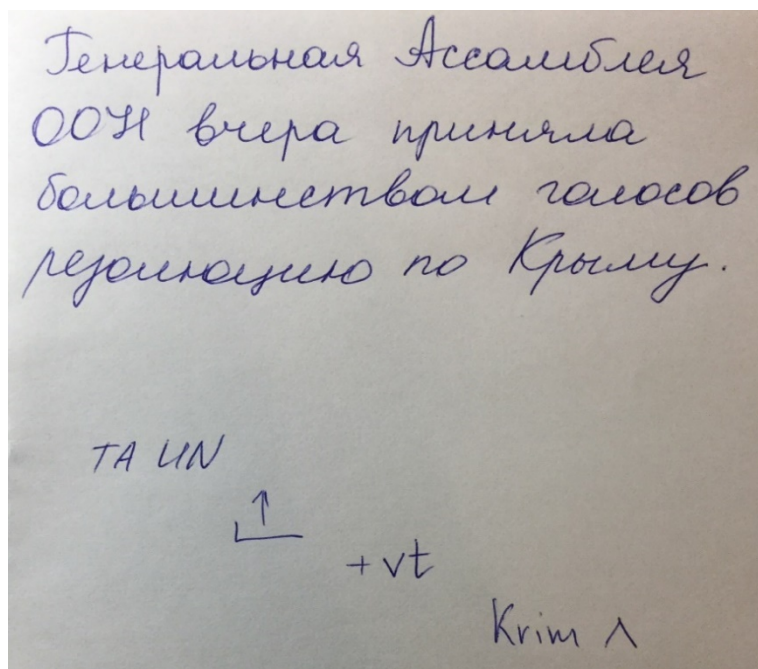 Генеральная Ассамблея
ООН вчера приняла
большинством голосов
резолюцию по Крыму.
ГА UN
↑
+vt
Krim ^